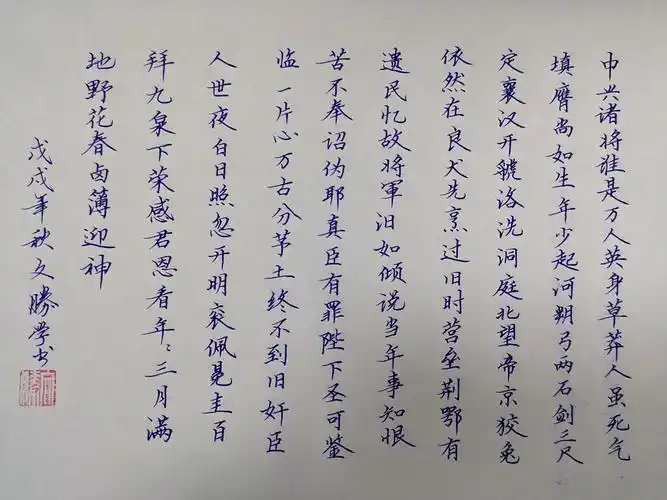 中兴诸将谁是万人英身草莽人虽死气
填膺尚如生年少起河朔弓两石剑三尺
定襄汉开虢洛洗洞庭北望帝京狡兔
依然在良犬先烹过旧时营垒荆鄂有
遗民忆故将軍泪如倾说当年事知恨
苦不奉诏伪耶真臣有罪陛下圣可鉴
临一片心万古分茅土终不到旧奸臣
人世夜白日照忽开明衮佩冕圭百
拜九泉下荣感君恩看年々三月满
地野花春卤簿迎神
戊戌年秋文勝学书